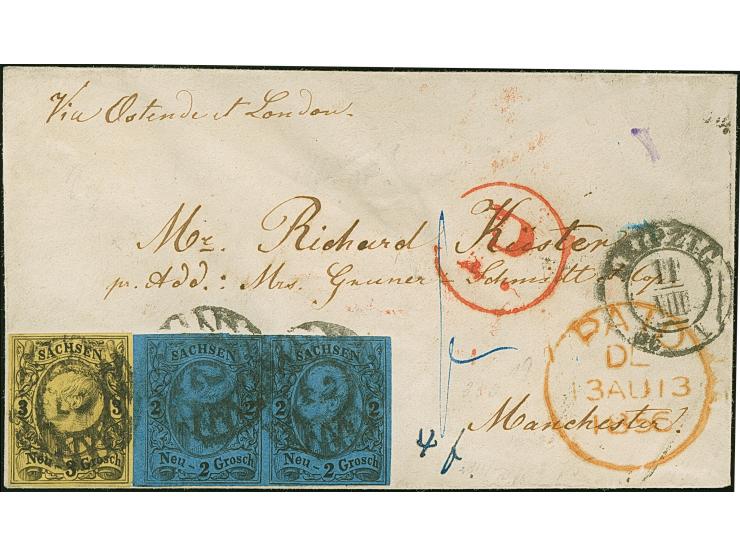 Via Ostende et London.
Mr. Richard Küster
pr. Add.: Mrs. Gruner - Schmidt & Co.
Manchester.
P.
LEIPZIG
11
VIII
PAID
DL
13AU13
SACHSEN
3
Neu - 3 Grosch
SACHSEN
2 2
Neu - 2 Grosch
SACHSEN
2 2
Neu - 2 Grosch
4